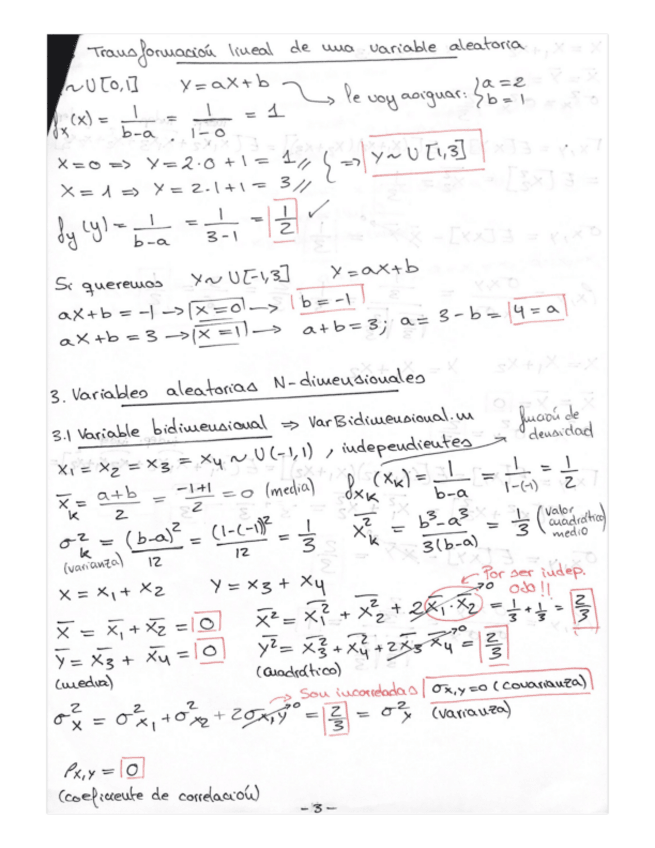 Transformación lineal de una variable aleatoria
~U[0,1] Y=aX+b → le voy asignar: { a=2 b=1
fx(x) = 1/(b-a) = 1/(1-0) = 1
X=0 => Y=2·0+1 = 1// } => Y~U[1,3]
X=1 => Y=2·1+1 = 3//
fy(y) = 1/(b-a) = 1/(3-1) = 1/2 ✓
Si queremos Y~U[-1,3] Y=aX+b
aX+b = -1 -> X=0 -> b=-1
aX+b = 3 -> X=1 -> a+b=3; a=3-b= 4=a
3. Variables aleatorias N-dimensionales
3.1 Variable bidimensional => VarBidimensional.m
función de densidad
x1 = x2 = x3 = x4 ~ U(-1,1), independientes
x̄k = (a+b)/2 = (-1+1)/2 = 0 (media) fxk(xk) = 1/(b-a) = 1/(1-(-1)) = 1/2
σ²k = (b-a)²/12 = (1-(-1))²/12 = 1/3 x̄²k = (b³-a³)/(3(b-a)) = 1/3 (valor cuadrático medio)
(varianza)
X = X1 + X2 Y = X3 + X4
Por ser indep. 0·0!!
X̄ = X̄1 + X̄2 = 0 X̄² = X̄²1 + X̄²2 + 2X̄1·X̄2 →0 = 1/3 + 1/3 = 2/3
Ȳ = X̄3 + X̄4 = 0 Ȳ² = X̄²3 + X̄²4 + 2X̄3 X̄4 →0 = 2/3
(media) (cuadrático)
→ Son incorreladas σx,y=0 (covarianza)
σ²x = σ²x1 + σ²x2 + 2σx,y →0 = 2/3 = σ²y (varianza)
ρx,y = 0
(coeficiente de correlación)
-3-